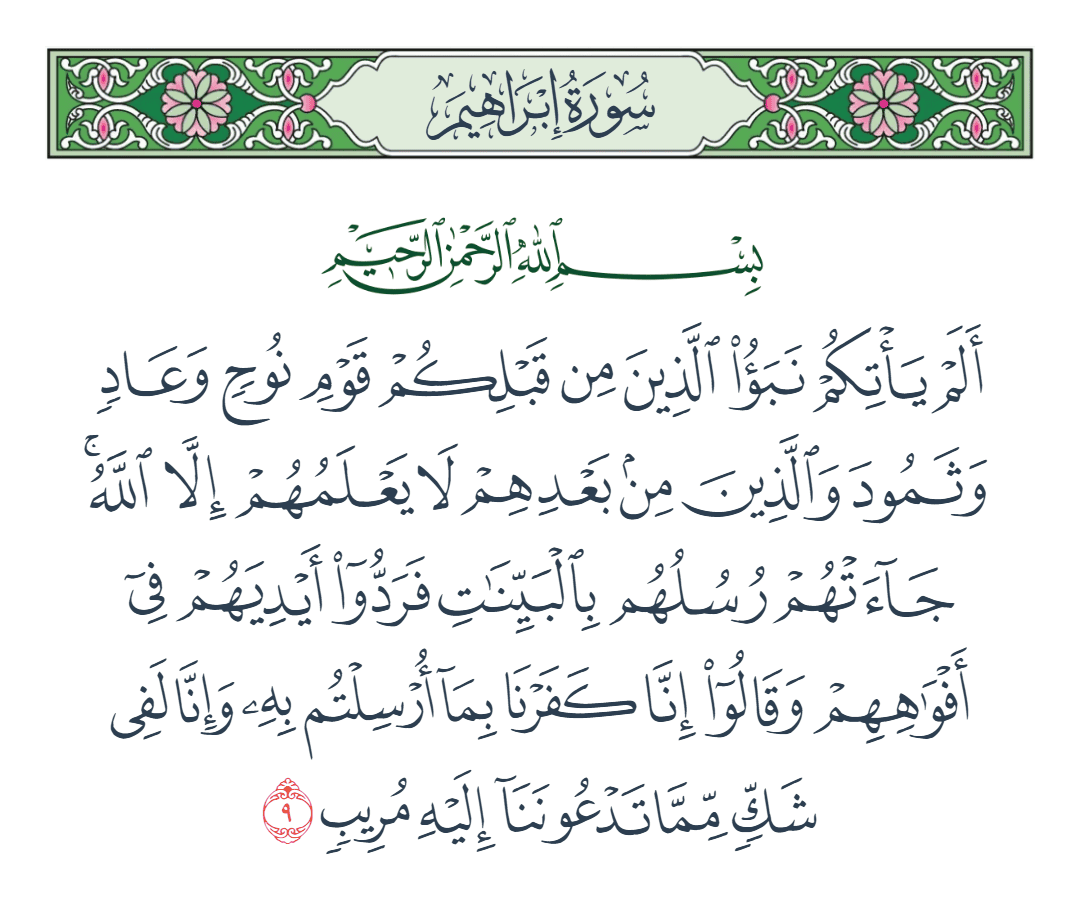 سُورَةُ إِبْرَاهِيمَ
بِسْمِ ٱللَّهِ ٱلرَّحْمَٰنِ ٱلرَّحِيمِ
أَلَمْ يَأْتِكُمْ نَبَؤُا۟ ٱلَّذِينَ مِن قَبْلِكُمْ قَوْمِ نُوحٍ وَعَادٍ
وَثَمُودَ وَٱلَّذِينَ مِنۢ بَعْدِهِمْ لَا يَعْلَمُهُمْ إِلَّا ٱللَّهُ ۚ
جَآءَتْهُمْ رُسُلُهُم بِٱلْبَيِّنَٰتِ فَرَدُّوٓا۟ أَيْدِيَهُمْ فِىٓ
أَفْوَٰهِهِمْ وَقَالُوٓا۟ إِنَّا كَفَرْنَا بِمَآ أُرْسِلْتُم بِهِۦ وَإِنَّا لَفِى
شَكٍّ مِّمَّا تَدْعُونَنَآ إِلَيْهِ مُرِيبٍ ٩